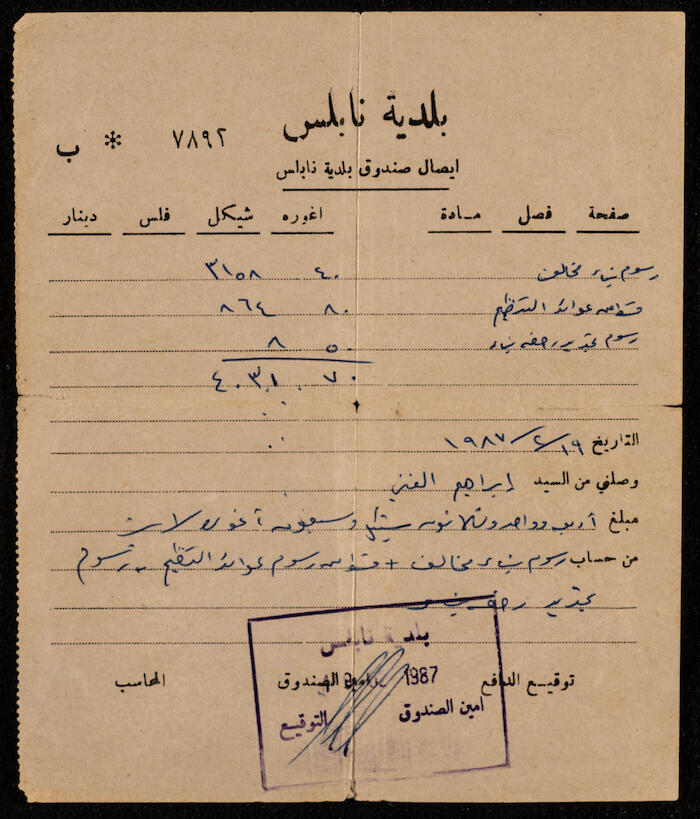 بلدية نابلس
ب * ٧٨٩٢
ايصال صندوق بلدية نابلس
صفحة فصل مـادة اغوره شيكل فلس دينار
رسوم بناء مخالف ٤٠ ٣١٥٨
عوائد التنظيم ٨٠ ٨٦٤
رسوم تجديد رخصة بناء ٥٠ ٨
٧٠ ٤٠٣١
التاريخ ١٩/٢/١٩٨٧
وصلني من السيد ابراهيم
مبلغ أربعة وواحد وثلاثون شيكل وسبعون أغورة لا
من حساب رسوم بناء مخالف + رسوم عوائد التنظيم رسوم
تجديد رخصة بناء
توقيـع الدافع امين الصندوق المحاسب
بلدية نابلس
1987
امين الصندوق
التوقيع